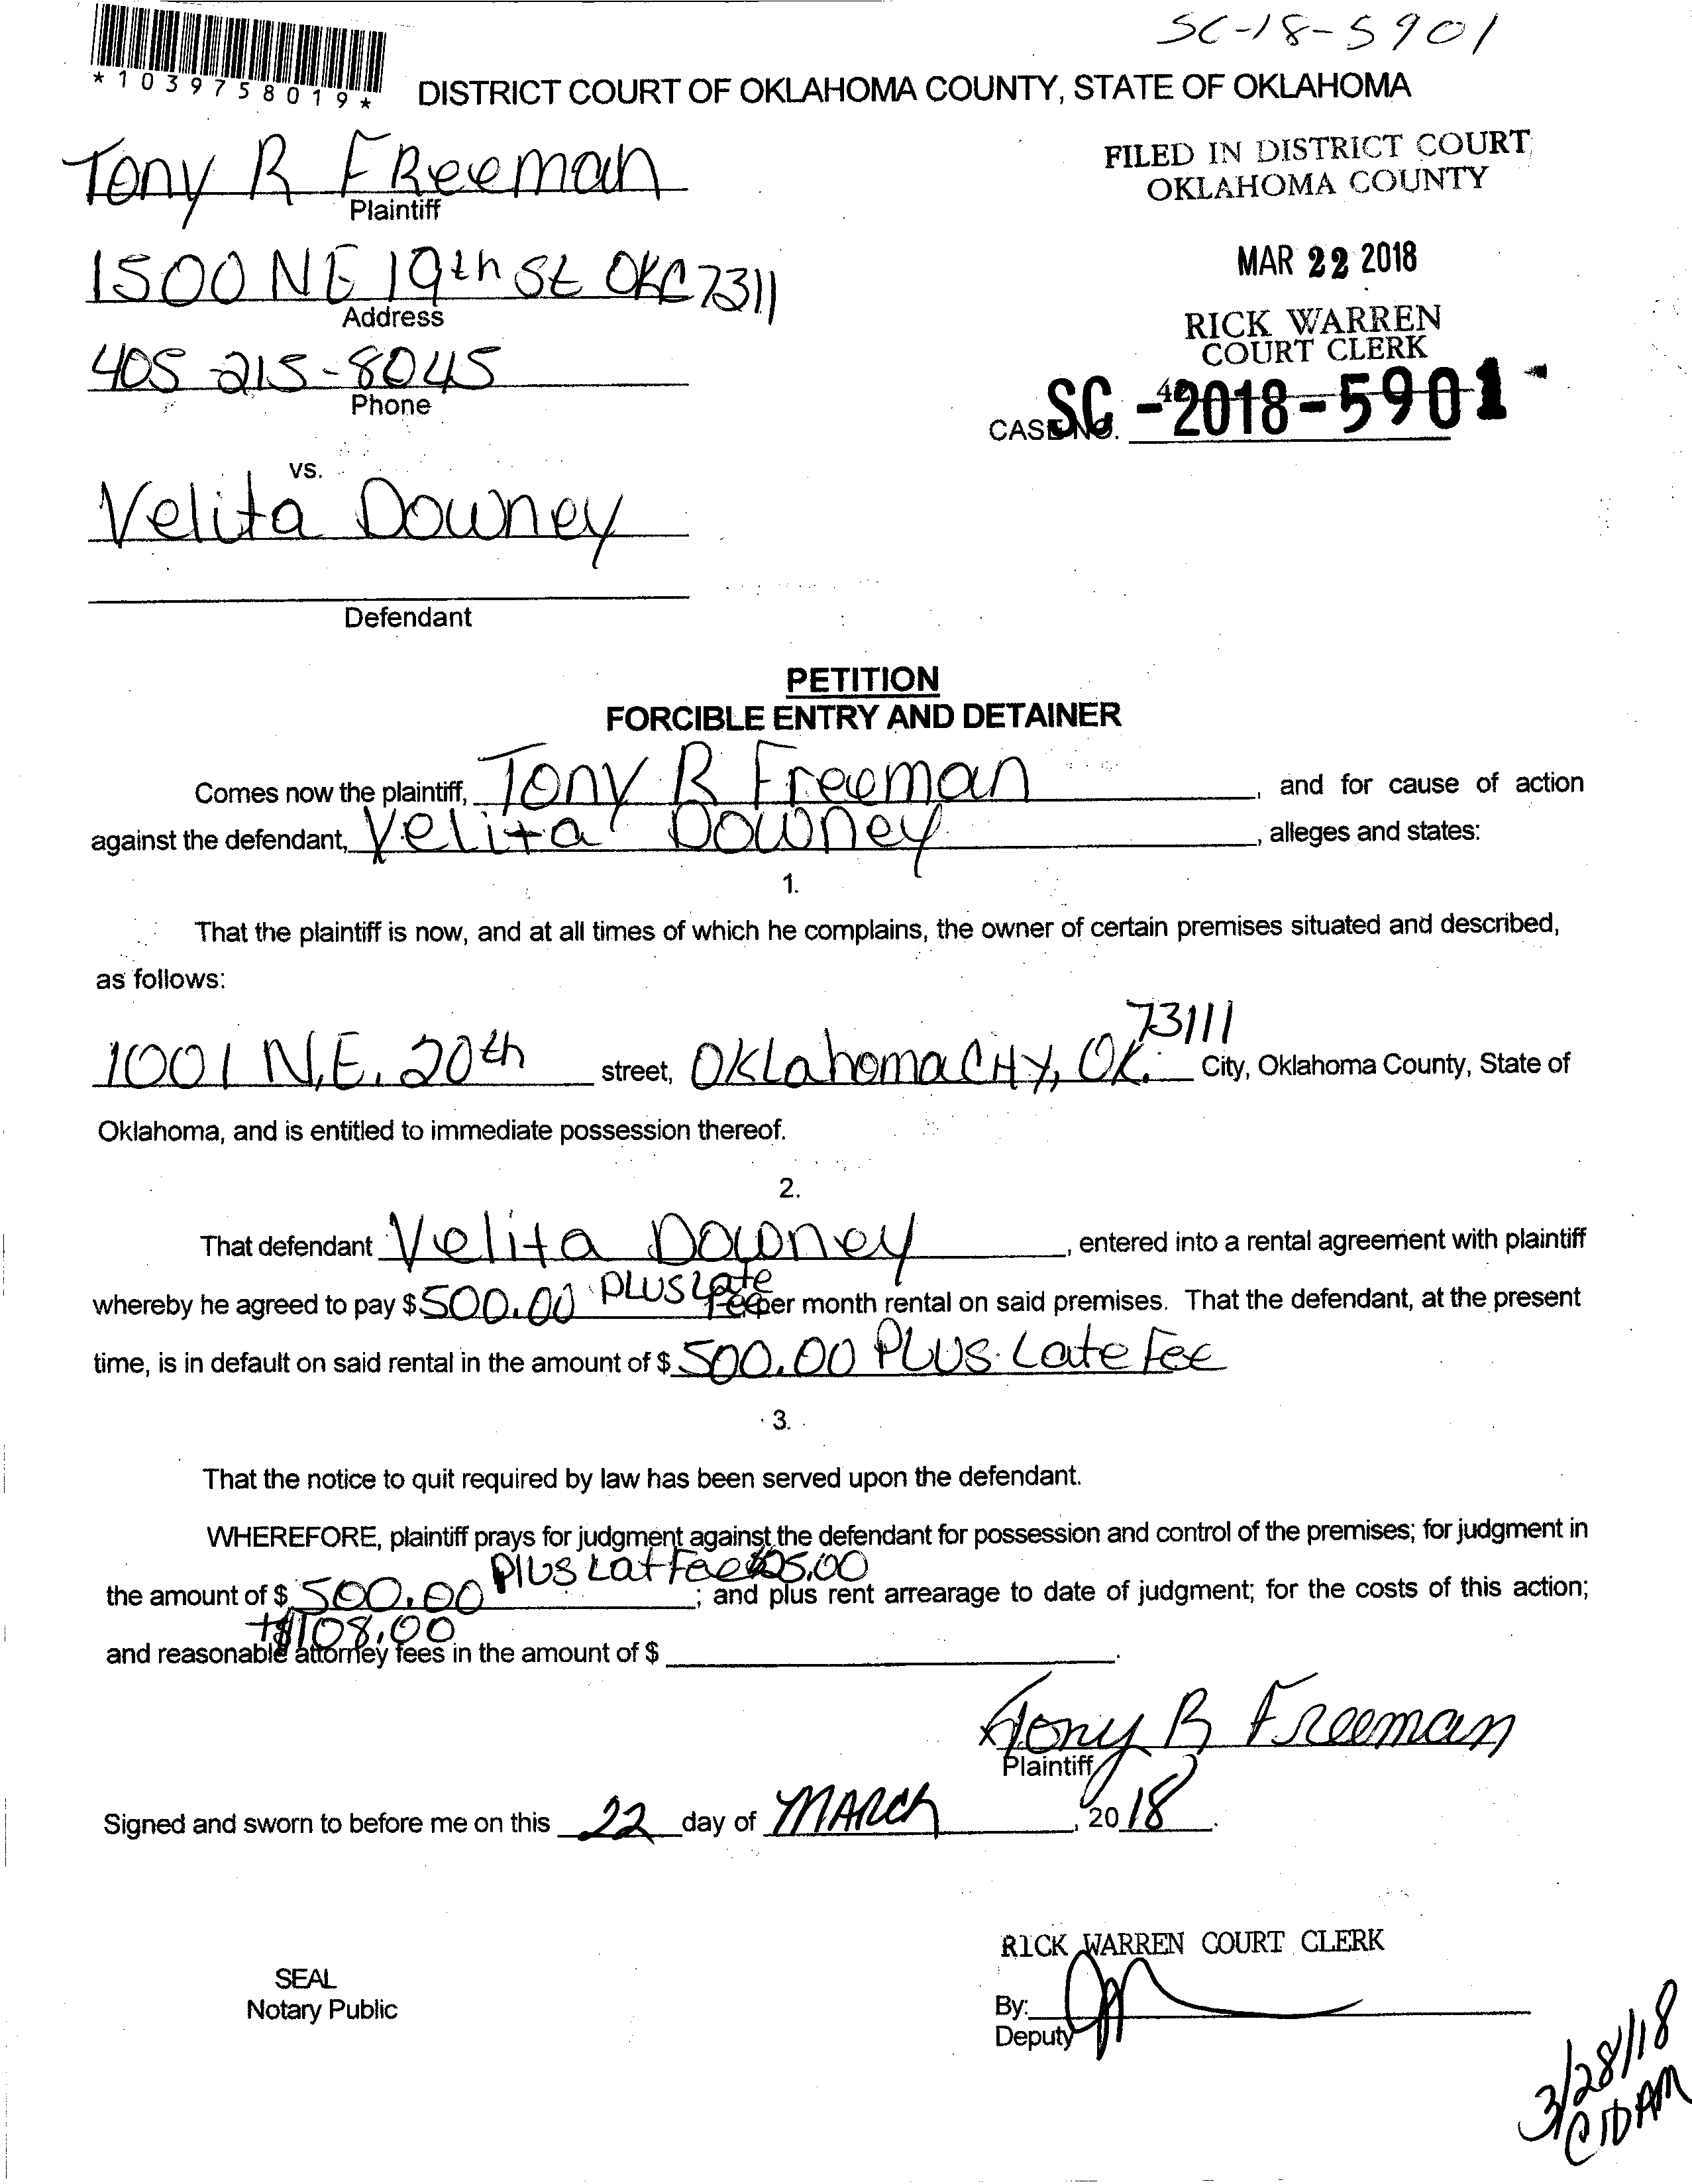 SC-18-5901
*1039758019*
DISTRICT COURT OF OKLAHOMA COUNTY, STATE OF OKLAHOMA
Tony R FReeman
Plaintiff
FILED IN DISTRICT COURT
OKLAHOMA COUNTY
1500 NE 19th St OKC 7311
Address
MAR 22 2018
RICK WARREN
COURT CLERK
405-215-8045
Phone
CASE NO. SC-2018-5901
vs.
Velita Downey
Defendant
PETITION
FORCIBLE ENTRY AND DETAINER
Comes now the plaintiff, Tony R Freeman, and for cause of action
against the defendant, Velita Downey, alleges and states:
1.
That the plaintiff is now, and at all times of which he complains, the owner of certain premises situated and described,
as follows:
73111
1001 N.E. 20th street, OKLahoma CitY, OK. City, Oklahoma County, State of
Oklahoma, and is entitled to immediate possession thereof.
2.
That defendant Velita Downey, entered into a rental agreement with plaintiff
whereby he agreed to pay $ 500.00 PLUS Late Fee per month rental on said premises. That the defendant, at the present
time, is in default on said rental in the amount of $ 500.00 PLUS Late Fee
3.
That the notice to quit required by law has been served upon the defendant.
WHEREFORE, plaintiff prays for judgment against the defendant for possession and control of the premises; for judgment in
Plus Lat Fee $25.00
the amount of $ 500.00; and plus rent arrearage to date of judgment; for the costs of this action;
+$108.00
and reasonable attorney fees in the amount of $
Tony R Freeman
Plaintiff
Signed and sworn to before me on this 22 day of MARch, 2018.
RICK WARREN COURT CLERK
SEAL
Notary Public
By:
Deputy
3/28/18
@10AM